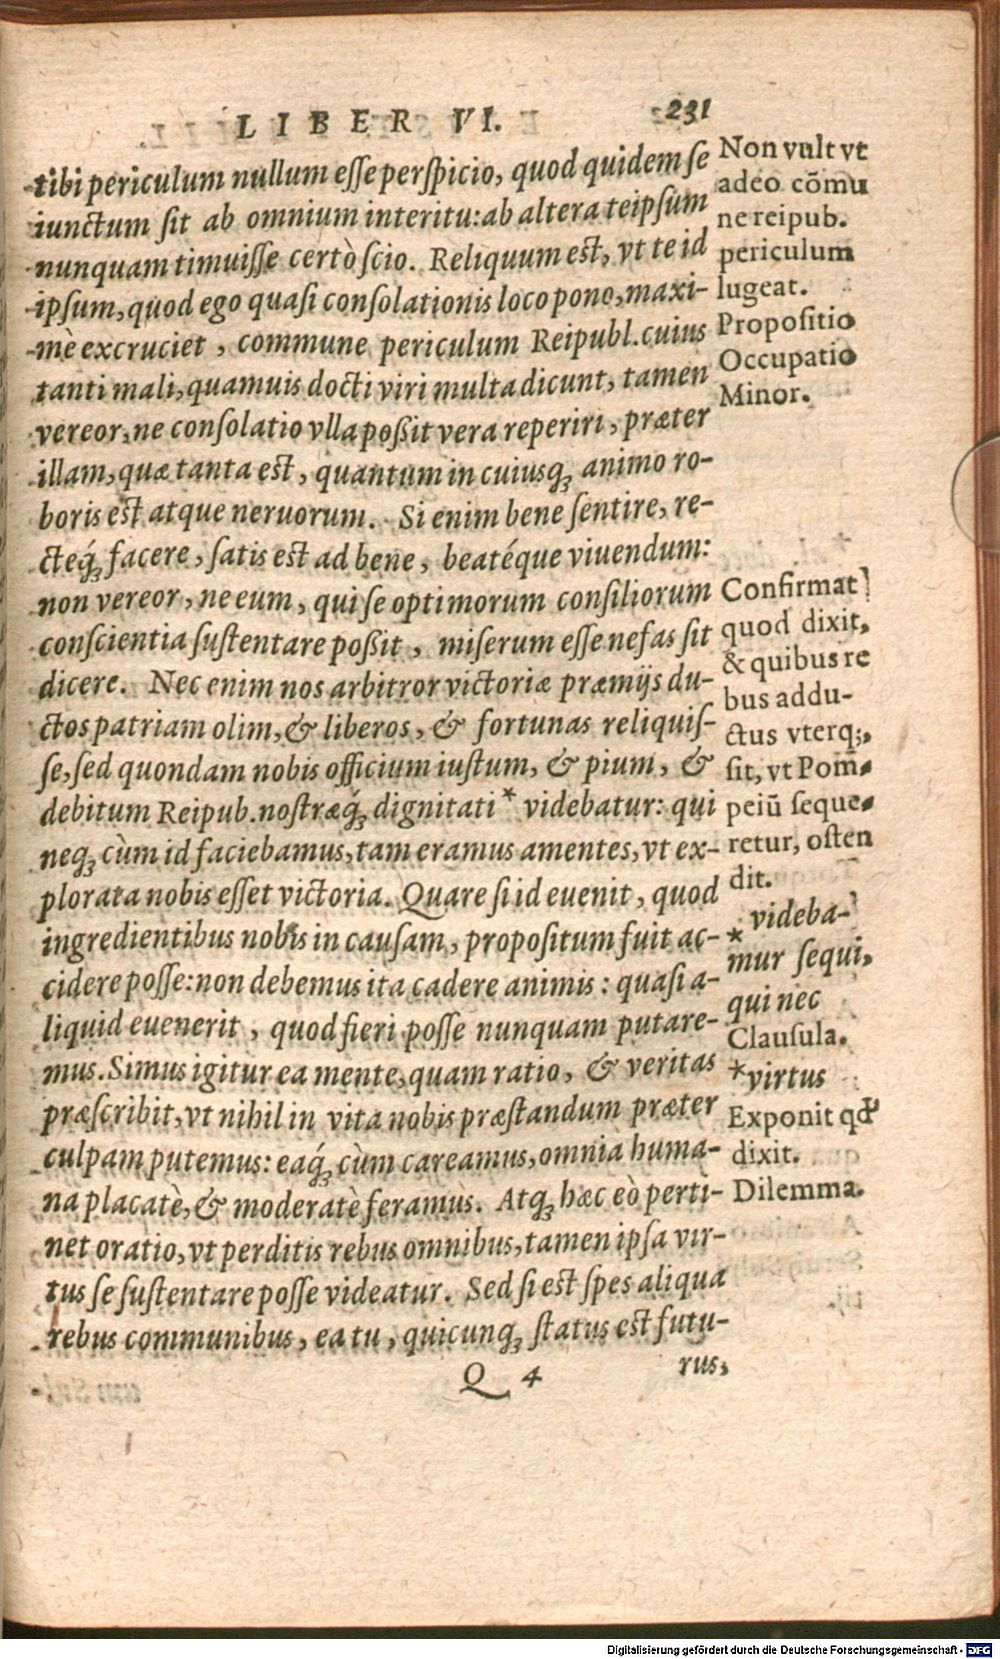 LIBER VI. 231
tibi periculum nullum eſſe perſpicio, quod quidem ſe
iunctum ſit ab omnium interitu: ab altera teipſum
nunquam timuiſſe certò ſcio. Reliquum est, vt te id
ipſum, quod ego quaſi conſolationis loco pono, maxi-
mè excruciet, commune periculum Reipubl. cuius
tanti mali, quamuis docti viri multa dicunt, tamen
vereor, ne conſolatio vlla poßit vera reperiri, præter
illam, quæ tanta est, quantum in cuiusq́; animo ro-
boris est atque neruorum. Si enim bene ſentire, re-
cteq́; facere, ſatis est ad bene, beatéque viuendum:
non vereor, ne eum, qui ſe optimorum conſiliorum
conſcientia ſuſtentare poßit, miſerum eſſe nefas ſit
dicere. Nec enim nos arbitror victoriæ præmijs du-
ctos patriam olim, & liberos, & fortunas reliquiſ-
ſe, ſed quondam nobis officium iuſtum, & pium, &
debitum Reipub. noſtræq́; dignitati * videbatur: qui
neq; cùm id faciebamus, tam eramus amentes, vt ex-
plorata nobis eſſet victoria. Quare ſi id euenit, quod
ingredientibus nobis in cauſam, propoſitum fuit ac-
cidere poſſe: non debemus ita cadere animis: quaſi a-
liquid euenerit, quod fieri poſſe nunquam putare-
mus. Simus igitur ea mente, quam ratio, & veritas
præſcribit, vt nihil in vita nobis præſtandum præter
culpam putemus: eaq́; cùm careamus, omnia huma-
na placatè, & moderatè feramus. Atq; hæc eò perti-
net oratio, vt perditis rebus omnibus, tamen ipſa vir-
tus ſe ſuſtentare poſſe videatur. Sed ſi est ſpes aliqua
rebus communibus, ea tu, quicunq; ſtatus est futu-
Q 4 rus,
Non vult vt
adeo cōmu
ne reipub.
periculum
lugeat.
Propoſitio
Occupatio
Minor.
Confirmat
quod dixit,
& quibus re
bus addu-
ctus vterq;,
ſit, vt Pom-
peiū ſeque-
retur, oſten
dit.
* videba-
mur ſequi,
qui nec
Clauſula.
*virtus
Exponit qď
dixit.
Dilemma.
Digitalisierung gefördert durch die Deutsche Forschungsgemeinschaft - DFG